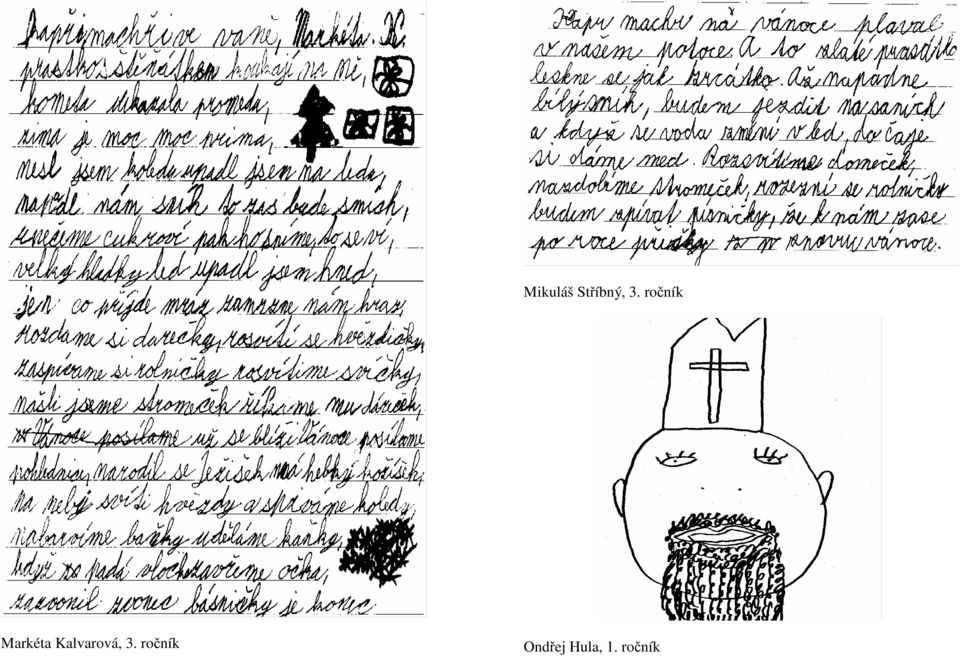 Kapři machři ve vaně, Markéta. K.
prasátko s štěňátkem koukají na mě,
kometa ukazala prometa,
zima je moc moc prima,
nesl jsem koledu upadl jsem na ledu,
napadl nám sníh to zas bude smích,
upečeme cukroví pak ho sníme, to se ví,
velký hladký led upadl jsem hned,
jen co příjde mráz zamrzne nám hraz,
rozdame si darečky, rosvítí se hvězdičky,
zaspiváme si rolničky rosvítíme svíčky,
našli jsme stromeček říkáme mu dáreček,
Vánoce posílame už se blíží Vánoce posílame
pohlednice, narodil se Ježíšek má hebký kožíšek,
na nebi svítí hvězdy a spíváme koledy,
nabarvíme baňky uděláme kaňky,
když padá vločka zavřeme očka,
zazvonil zvonec básničky je konec
Markéta Kalvarová, 3. ročník
Kápr machr na vánoce plaval
v našem potoce. A to zlaté prasátko
leskne se jak zrcátko. Až napadne
bílý sníh, budem jezdit na saních
a když se voda změní v led, do čaje
si dáme med. Rozsvítíme domeček,
nazdobíme stromeček, rozezní se rolničky
budem zpívat písničky, že k nám zase
po roce přišly znovu vánoce.
Mikuláš Stříbný, 3. ročník
Ondřej Hula, 1. ročník